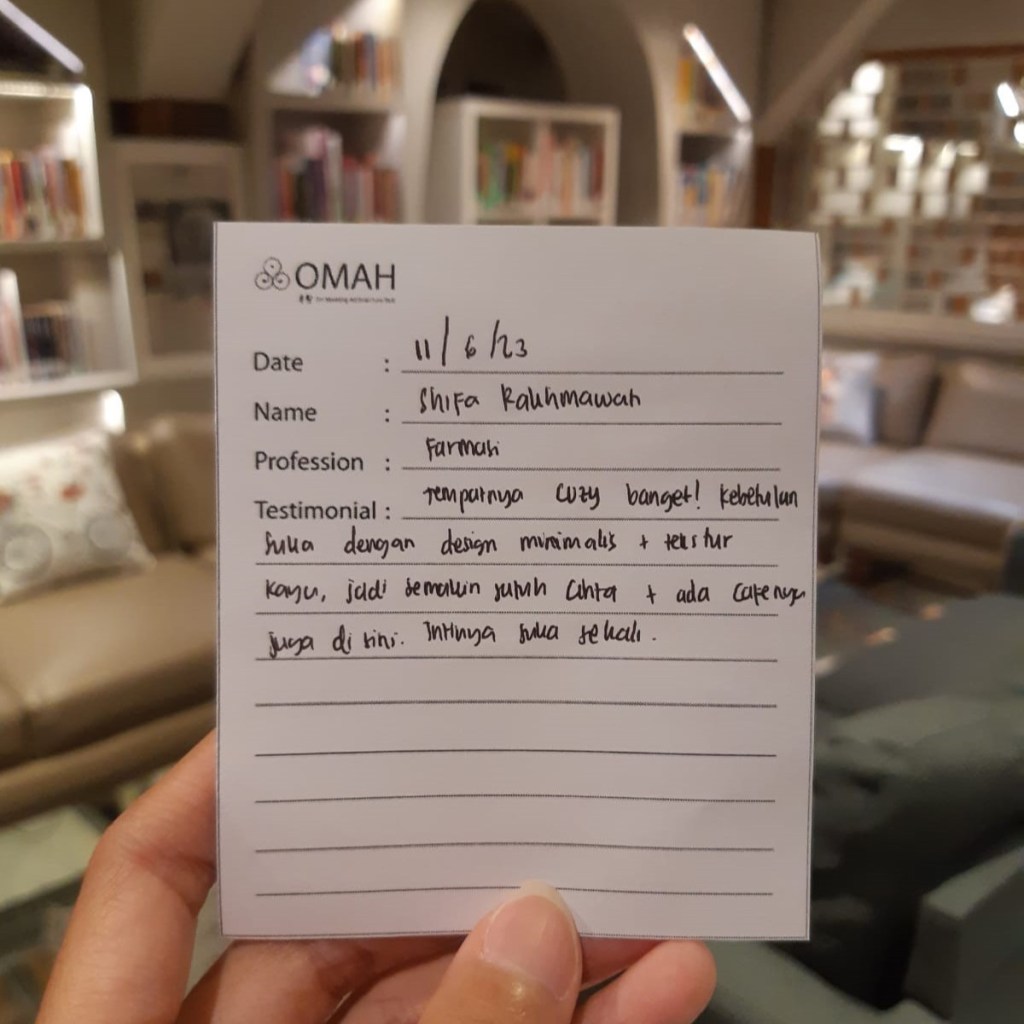 OMAH
Date : 11/6/23
Name : Shifa Rakhmawati
Profession : Farmasi
Testimonial : Tempatnya cozy banget! Kebetulan
suka dengan design minimalis + tekstur
kayu, jadi semakin jatuh cinta + ada cafenya
juga di sini. Intinya suka sekali.